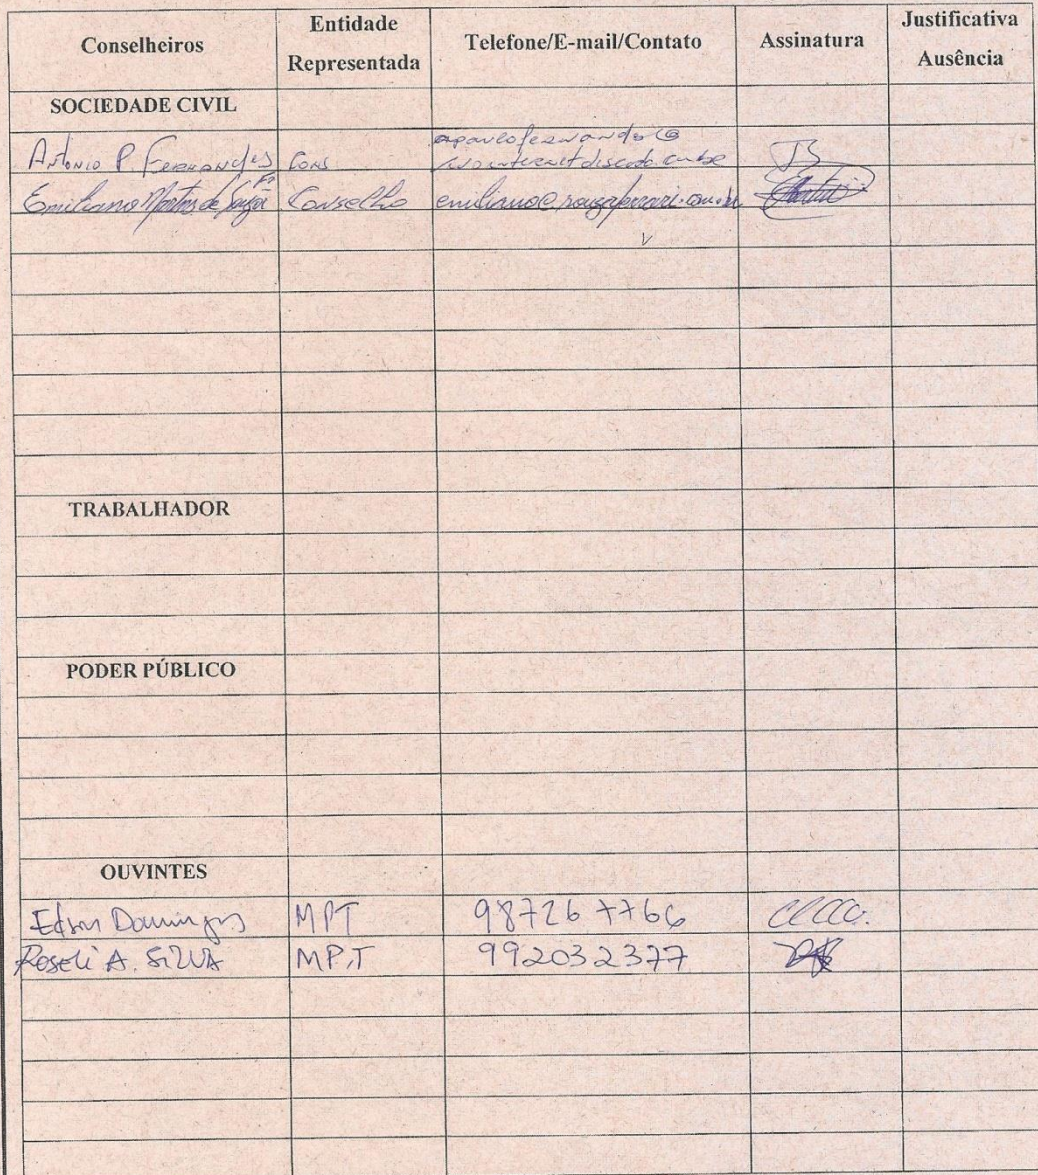 Conselheiros Entidade Representada Telefone/E-mail/Contato Assinatura Justificativa Ausência
SOCIEDADE CIVIL
Antonio P. Fernandes Cons
Emiliano Martins de Souza Conselho
TRABALHADOR
PODER PÚBLICO
OUVINTES
Edson Domingos MPT 987267766
Roseli A. SILVA MPT 992032377